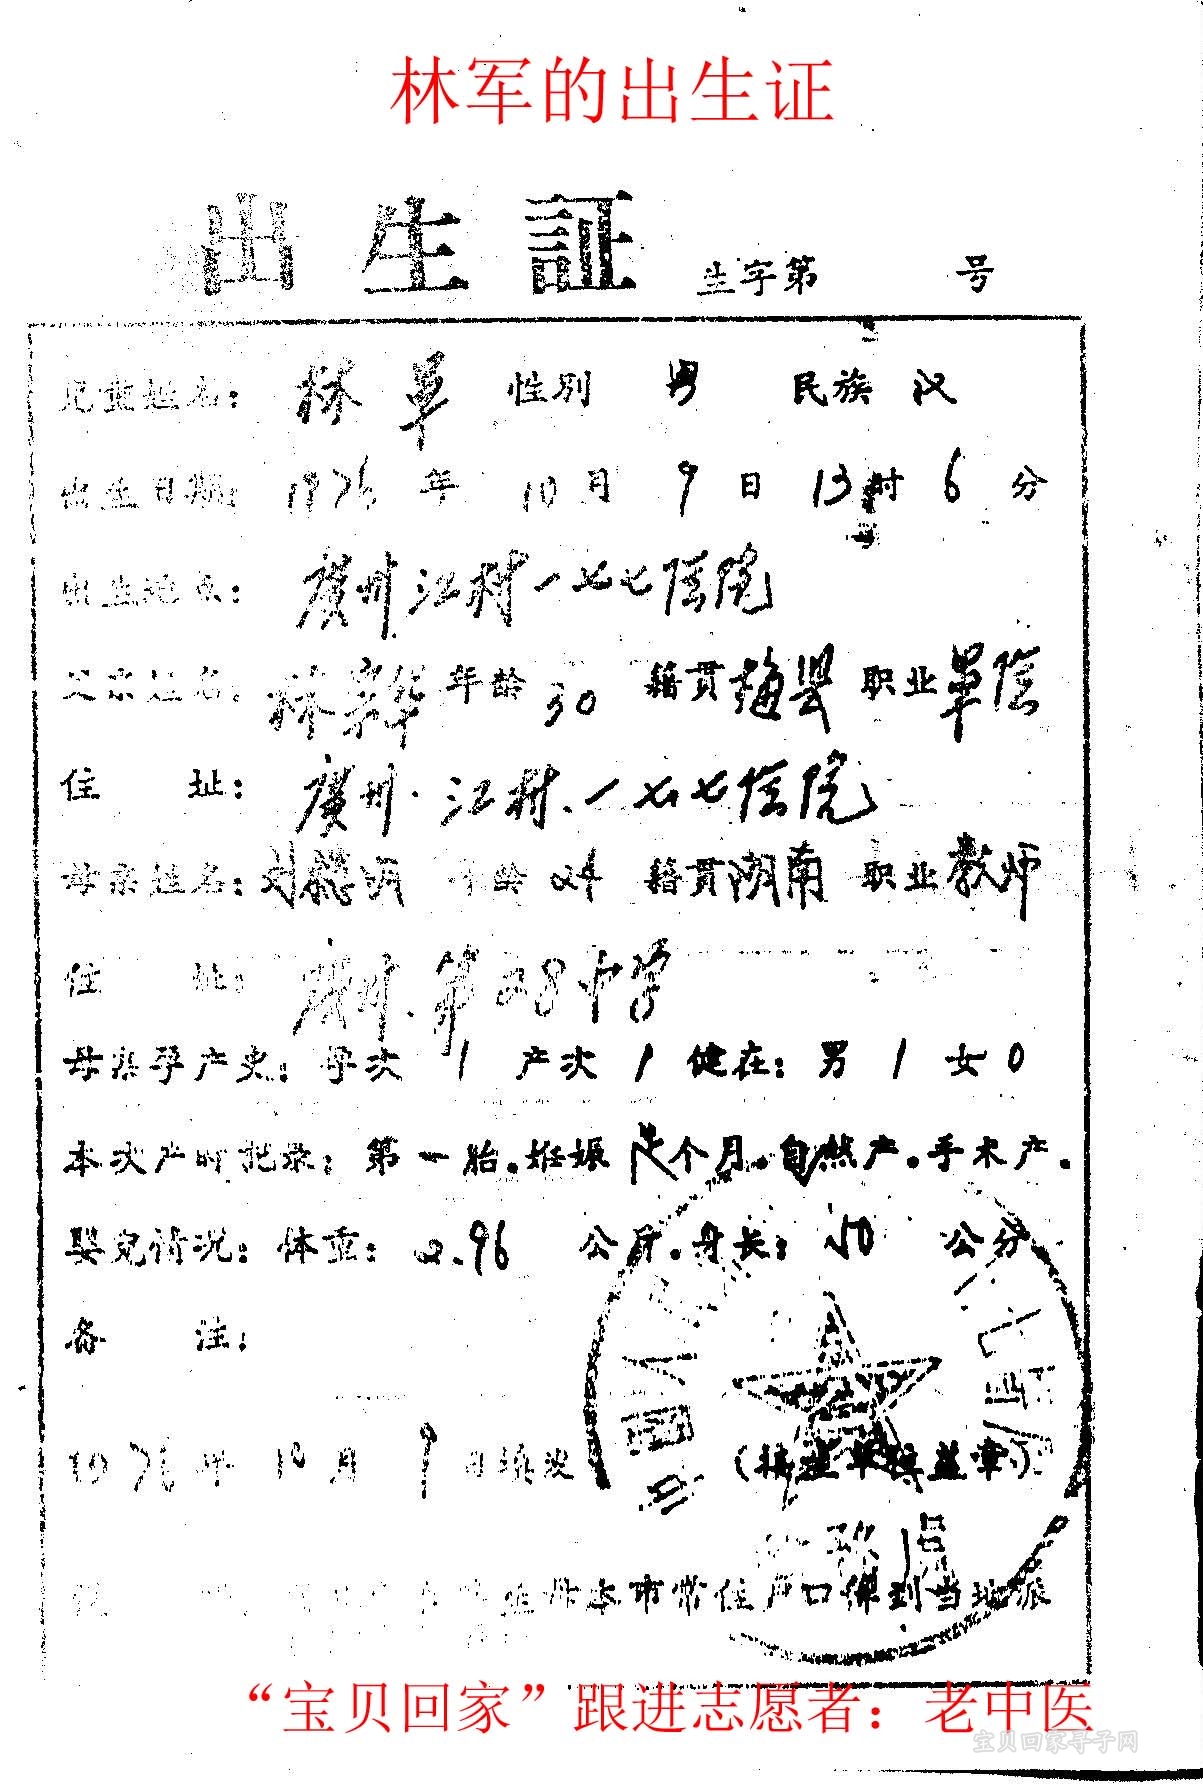 林军的出生证
出生証 生字第 号
儿童姓名: 林军 性别 男 民族 汉
出生日期: 1976年10月9日13时6分
出生地点: 广州江村一七七医院
父亲姓名: 林宗华 年龄30 籍贯梅县 职业军医
住 址: 广州·江村、一七七医院
母亲姓名: 刘 年龄24 籍贯湖南 职业教师
住 址: 广州.第28中学
母亲孕产史: 孕次 1 产次 1 健在: 男 1 女 0
本次产时记录: 第一胎.妊娠足个月.自然产.手术产.
婴儿情况: 体重: 2.96 公斤.身长: 50 公分
备 注:
1976年10月9日填发 (接生单位盖章)
医务
本市常住户口 到当地派
“宝贝回家”跟进志愿者：老中医
宝贝回家寻子网